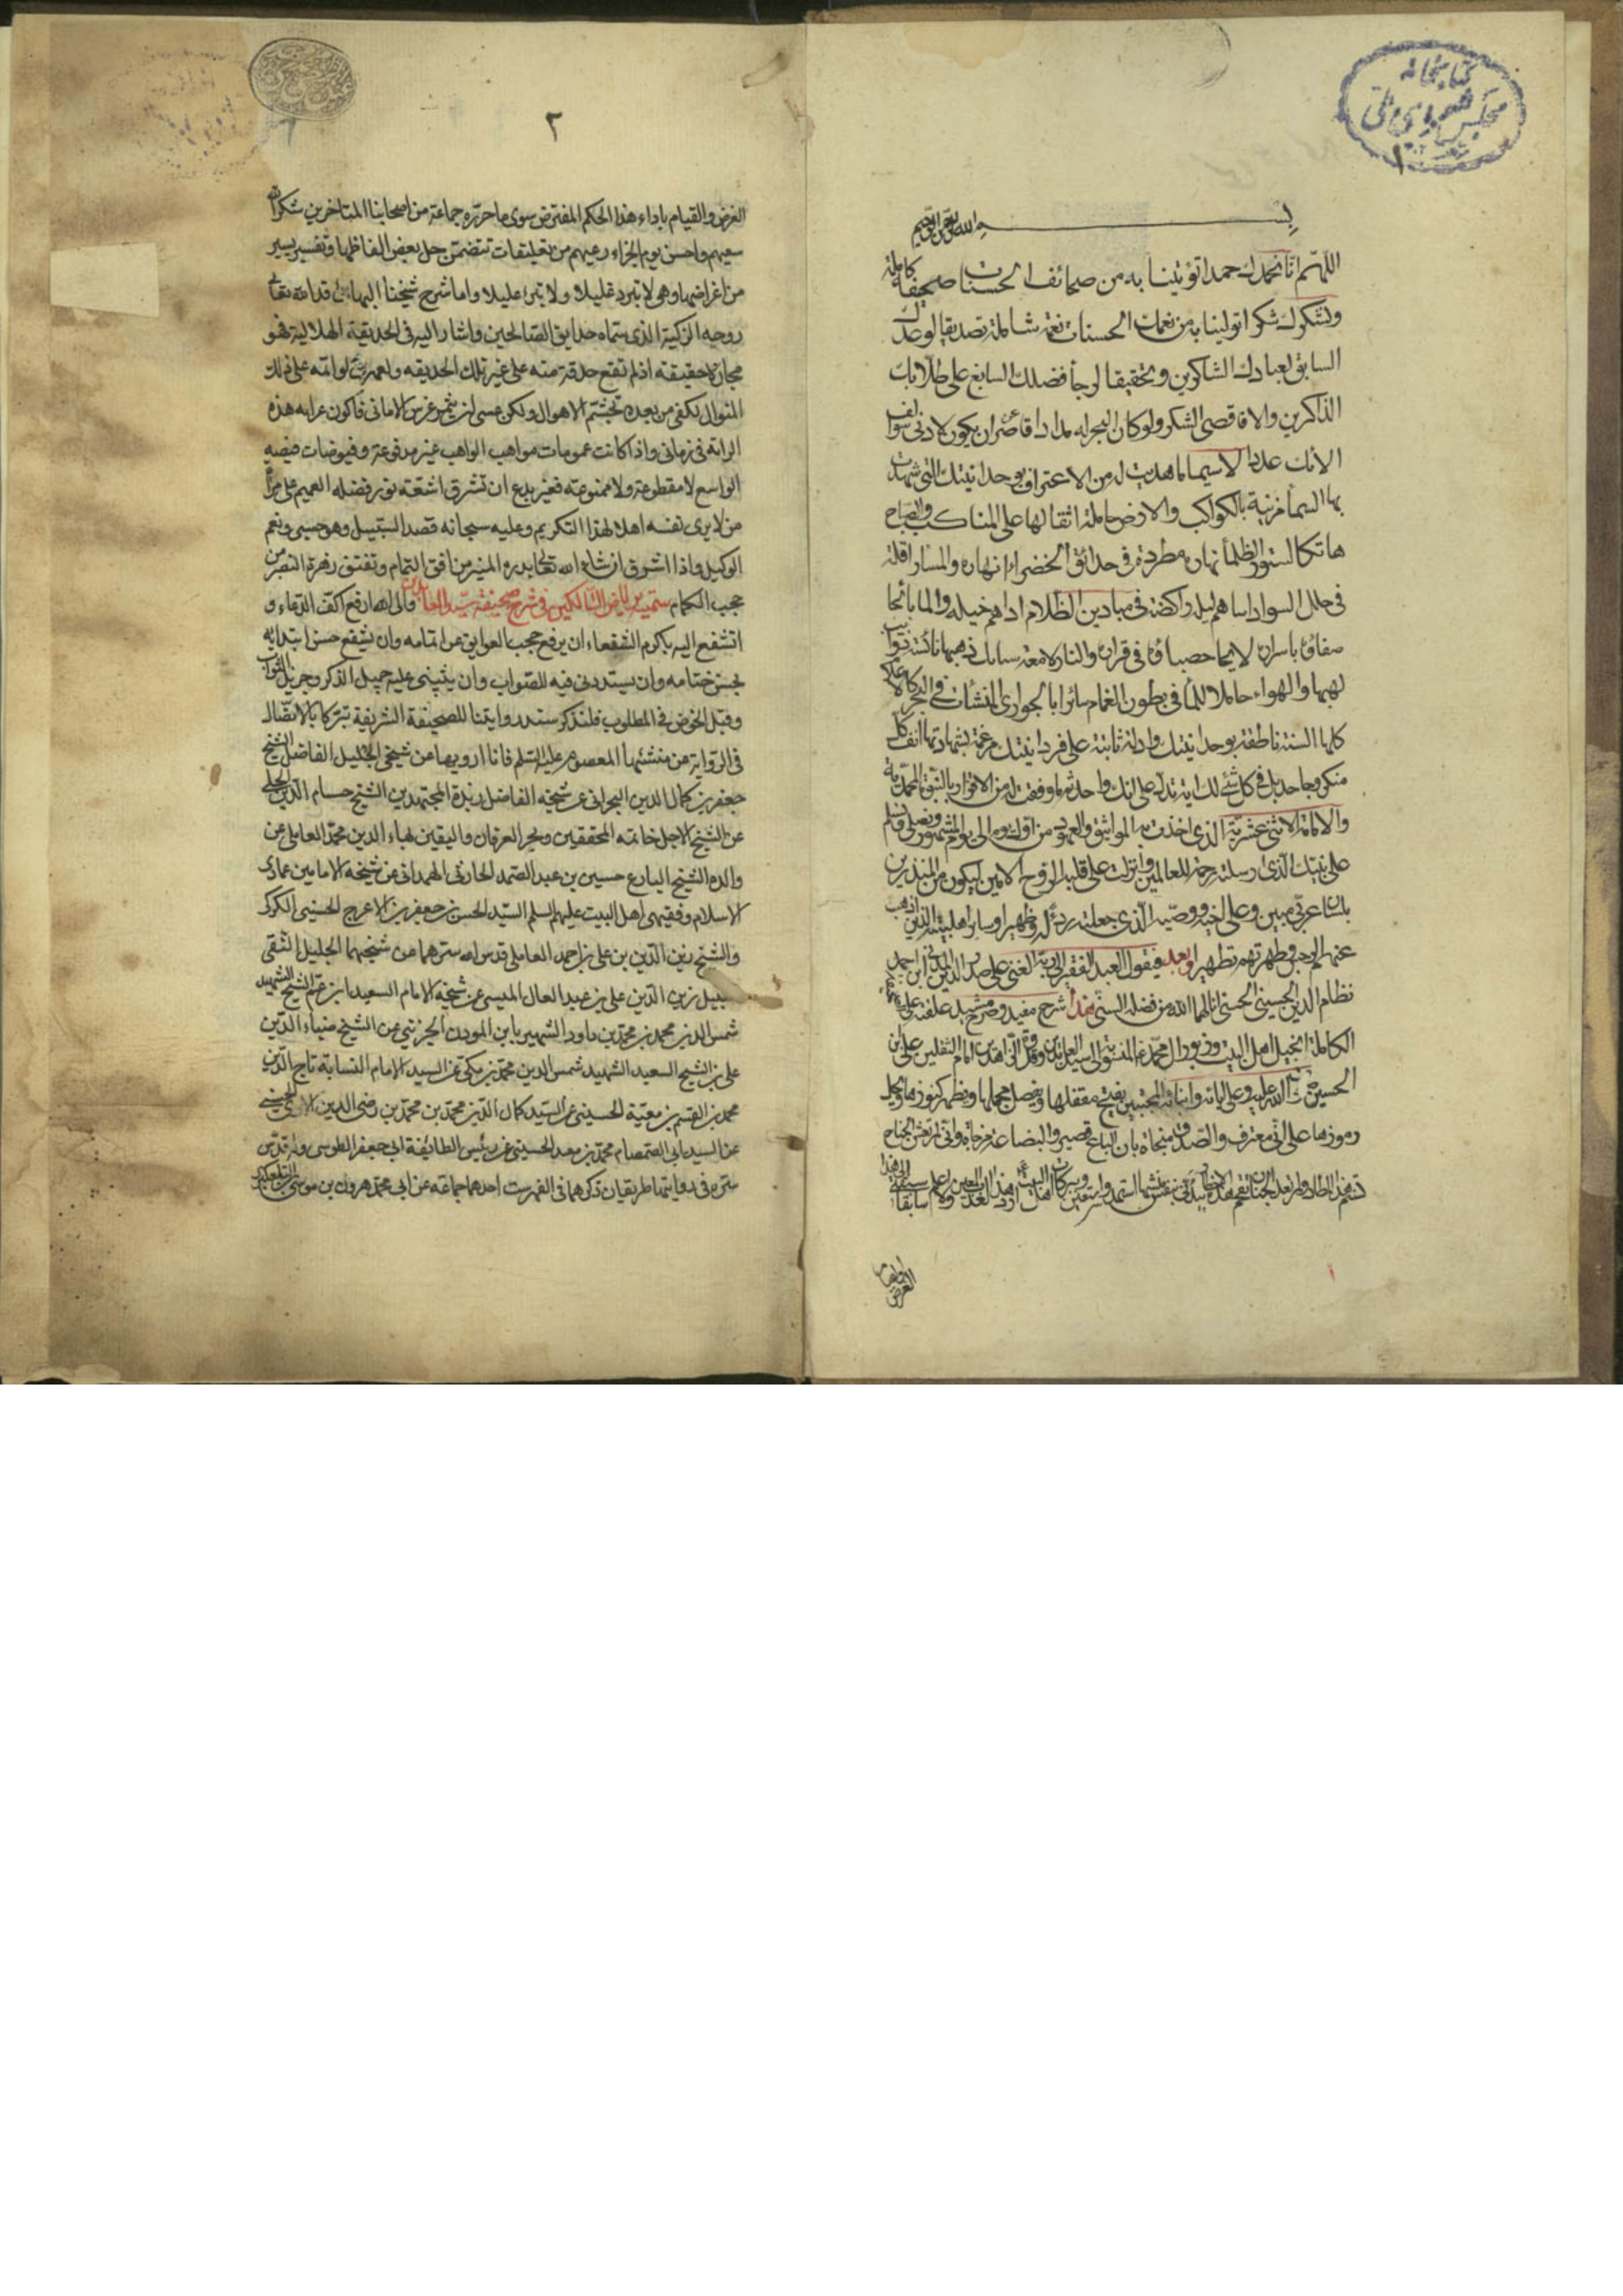 كتابخانه
مجلس شورای ملی
بسم الله الرحمن الرحيم
اللهم انا نحمدك حمدا تؤتينا به من صحائف الحسنات صحيفة كاملة
ونشكرك شكرا تولينا به من نعمك الحسنات نعمة شاملة تصديقا لوعدك
السابق لعبادك الشاكرين وتحقيقا لرجاء فضلك السابغ على
الذاكرين والا فاقصى الشكر ولو كان البحر له مدادا قاصر ان يكون لادنى سوالف
الائك عدادا لاسيما ما هديت له من الاعتراف بوحدانيتك التي شهدت
بها السماء مزينة بالكواكب والارض حاملة اثقالها على المناكب والصباح
هاتكا لستور الظلماء نهاره مطردة في حدائق الخضراء انهاره والمساء رافلة
في حلل السواد راكضة في ميادين الظلام اداهم خيله والماء
باسراره حصباؤه في قراره والنار لامعة
والهواء حاملا للماء في بطون الغمام سائرا بالجواري المنشات في البحر كالاعلام
السنة ناطقة بوحدانيتك وادلة ثابتة على فردانيتك مرغمة بشهادتها انف كل
منكر وجاحد بل في كل شيء لك اية تدل على انك واحد ثم ما وفقت له من الاقرار بالنبوة المحمدية
والامامة الاثنى عشرية الذي اخذت به المواثيق والعهود من اول يوم الى يوم المشهود ونصلي ونسلم
على نبيك الذي ارسلته رحمة للعالمين وانزلت على قلبه الروح الامين ليكون من المنذرين
بلسان عربي مبين وعلى اخيه ووصيه الذي جعلته ردءا له وظهيرا وسائر اهل بيته الذين اذهبت
عنهم الرجس وطهرتهم تطهيرا وبعد فيقول العبد الفقير الى ربه الغني علي صدر الدين المدني ابن احمد
نظام الدين الحسيني الحسني انالهما الله من فضله السني هذا شرح مفيد وصرح مشيد علقته على
الكاملة انجيل اهل البيت وزبور ال محمد ع المنسوبة الى سيد العابدين وقدوة الزاهدين امام الثقلين علي بن
الحسين صلى الله عليه وعلى ابائه وابنائه المجتبين يفتح مقفلها ويفصل مجملها ويظهر كنوزها ويحل
رموزها على اني معترف والصدق منجاة بان الباع قصير والبضاعة مزجاة
الغرض
الغرض والقيام باداء هذا الحكم المفترض سوى ما حرره جماعة من اصحابنا المتاخرين شكر الله
سعيهم واحسن يوم الجزاء رعيهم من تعليقات تتضمن حل بعض الفاظها وتفسير يسير
من اغراضها وهي لا تبرد غليلا ولا تبرء عليلا واما شرح شيخنا البهائي قدس الله تعالى
روحه الزكية الذي سماه حدايق الصالحين واشار اليه في الحديقة الهلالية فهو
مجاز لا حقيقة اذ لم تقع حدقة منه على غير تلك الحديقه ولعمري لو اتمه على ذلك
المنوال لكفى من بعده تجشم الاهوال ولكن عسى ان يثمر غرس الاماني فاكون عرابه هذه
الراية في زماني واذا كانت عمومات مواهب الواهب غير مدفوعة وفيوضات فيضه
الواسع لا مقطوعة ولا ممنوعة فغير بدع ان تشرق اشعة نور فضله العميم على مرآة
من لا يرى نفسه اهلا لهذا التكريم وعليه سبحانه قصد السبيل وهو حسبي ونعم
الوكيل واذا اشرق ان شاء الله تعالى بدره المنير من افق التمام وتفتق زهرة النضر من
حجب الكمام سميته رياض السالكين في شرح صحيفة سيد العابدين والى الله ارفع اكف الدعاء و
اتشفع اليه باكرم الشفعاء ان يرفع حجب العوايق عن اتمامه وان يشفع حسن ابتدائه
بحسن ختامه وان يسددني فيه للصواب وان يثيبني عليه جميل الذكر وجزيل الثواب
وقبل الخوض في المطلوب فلنذكر سند روايتنا للصحيفة الشريفة تبركا بالاتصال
في الرواية عن منشئها المعصوم عليه السلم فانا ارويها عن شيخي الجليل الفاضل الشيخ
جعفر بن كمال الدين البحراني عن شيخه الفاضل زبدة المجتهدين الشيخ حسام الدين الحلي
عن الشيخ الاجل خاتمة المحققين وبحر العرفان واليقين بهاء الدين محمد العاملي عن
والده الشيخ البارع حسين بن عبد الصمد الحارثي الهمداني عن شيخه الامامين عمادى
الاسلام وفقيهى اهل البيت عليهم السلم السيد الحسن بن جعفر بن الاعرج الحسيني الكركي
والشيخ زين الدين بن علي بن احمد العاملي قدس الله سرهما عن شيخهما الجليل التقي
النبيل زين الدين علي بن عبد العال الميسي عن شيخه الامام السعيد ابن عم الشيخ الشهيد
شمس الدين محمد بن محمد بن داود الشهير بابن الموذن الجزيني عن الشيخ ضياء الدين
علي بن الشيخ السعيد الشهيد شمس الدين محمد بن مكي عن السيد الامام النسابة تاج الدين
محمد بن القسم بن معية الحسيني عن السيد كمال الدين محمد بن محمد بن رضي الدين الاوي الحسيني
عن السيد ابي الصمصام محمد بن معد الحسيني عن رئيس الطائفة ابي جعفر الطوسي وله قدس
سره في روايتها طريقان ذكرهما في الفهرست احدهما جماعة عن ابي محمد هرون بن موسى التلعكبري